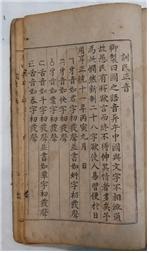 訓民正音
御製曰國之語音異乎中國與文字不相流通
故愚民有所欲言而終不得伸其情者多矣予
爲此憫然新制二十八字欲使人易習便於日
用耳正統十一年丙寅九月 日
牙音如君字初發聲並書如虯字初發聲
牙音如快字初發聲
牙音如業字初發聲
舌音如斗字初發聲並書如覃字初發聲
舌音如呑字初發聲